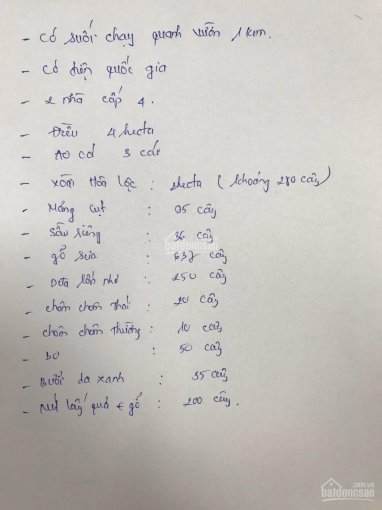 - Có suối chạy quanh vườn 1 km.
- Có điện quốc gia
- 2 nhà cấp 4.
- Điều 4 hecta
- AO cá 3 cái
- XOÀI Hòa Lộc : hecta ( khoảng 280 cây)
- Măng cụt : 05 cây
- Sầu riêng : 36 cây
- gổ sưa : 637 cây
- Dừa lớn nhỏ : 250 cây
- chôm chôm thái : 20 cây
- chôm chôm thường : 10 cây
- BƠ : 50 cây
- Bưởi da xanh : 35 cây
- Mít lấy quả + gổ : 200 cây.
batdongsan
.com.vn